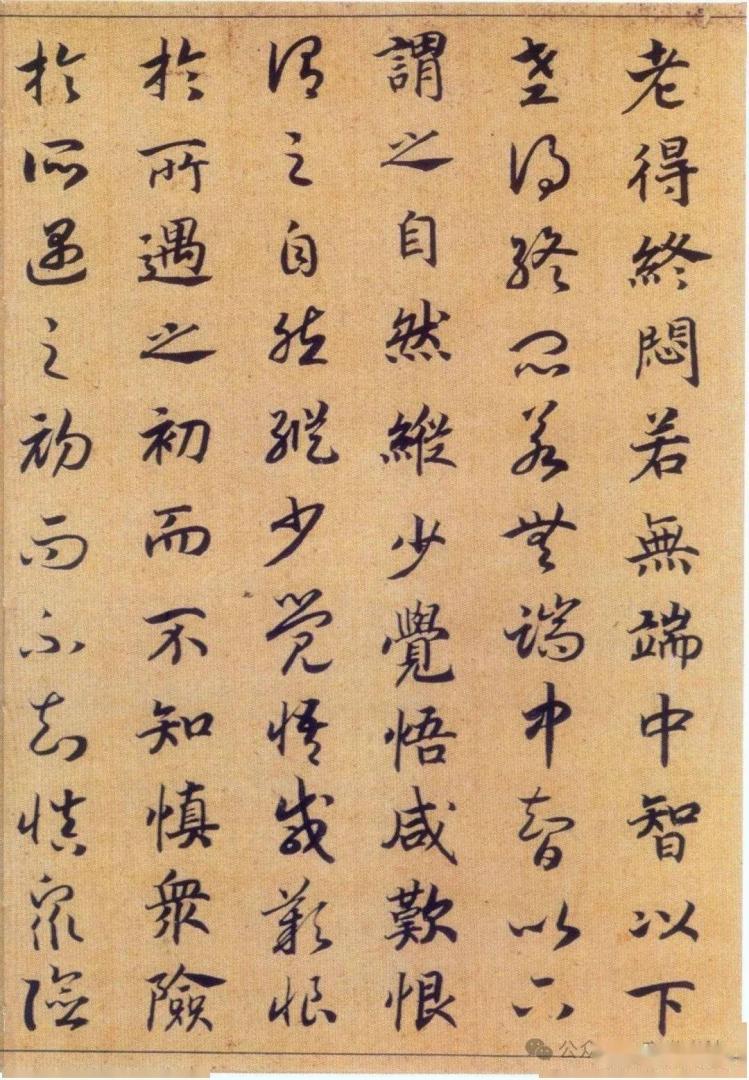 老得終悶若無端中智以下
老得終悶若無端中智以下
謂之自然縱少覺悟咸歎恨
謂之自然縱少覺悟咸歎恨
於所遇之初而不知慎衆險
於所遇之初而不知慎衆險
公众